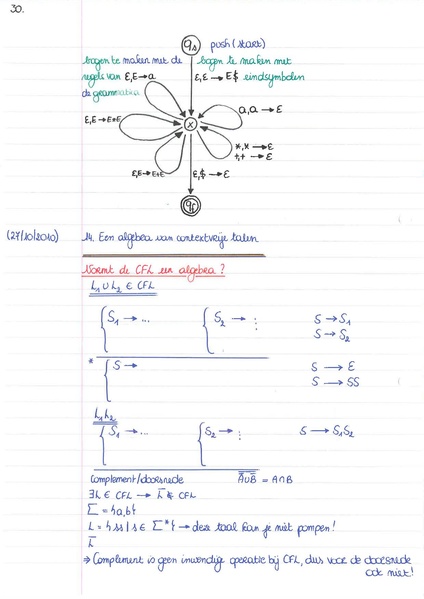 30.
q_s push (start)
bogen te maken met de
regels van
de grammatica
bogen te maken met
eindsymbolen
ε,ε → E$
ε,E → a
a,a → ε
ε,E → E*E
x
*,* → ε
+,+ → ε
ε,E → E+E
ε,$ → ε
q_f
(27/10/2010) 14. Een algebra van contextvrije talen
Vormt de CFL een algebra?
L₁ ∪ L₂ ∈ CFL
{ S₁ → ... { S₂ → ⋮ S → S₁
S → S₂
* { S → S → ε
S → SS
L₁L₂
{ S₁ → ... { S₂ → ⋮ S → S₁S₂
Complement/doorsnede A̅∪B̅ = A∩B
∃L ∈ CFL → L̅ ∉ CFL
Σ = {a,b}
L = {ss | s ∈ Σ*} → deze taal kan je niet pompen!
L̅
⇒ Complement is geen inwendige operatie bij CFL, dus voor de doorsnede
ook niet!